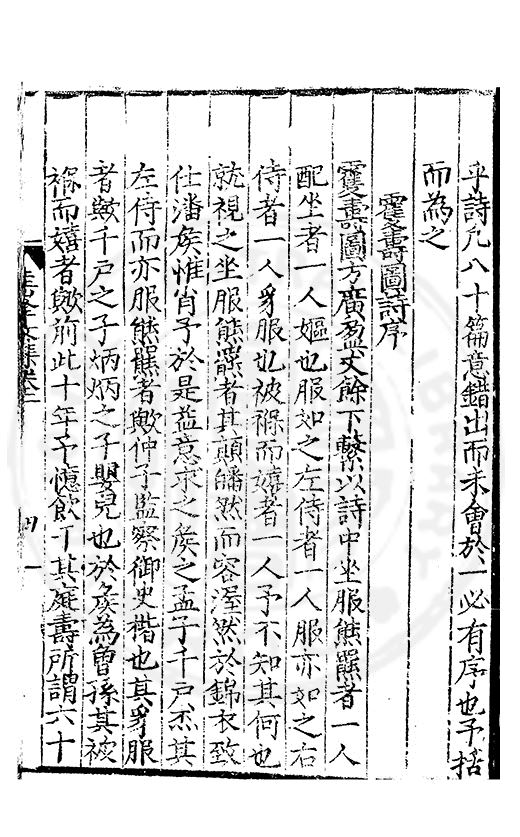 乎詩凡八十篇意錯出而未會於一必有序也予括
而為之
霍夀圖詩序
霍夀圖方廣盈丈餘下繫以詩中坐服熊羆者一人
配坐者一人嫗也服如之左侍者一人服亦如之右
侍者一人豸服也被褓而嬉者一人予不知其何也
就視之坐服熊羆者其顛皤然而容渥然於錦衣致
仕潘矦惟肖予於是益意求之矦之孟子千戶杰其
左侍而亦服熊羆者歟仲子監察御史楷也其豸服
者歟千戶之子炳炳之子嬰兒也於矦為曾孫其被
褓而嬉者歟前此十年予憶飲于其庭壽所謂六十
文集卷二
四